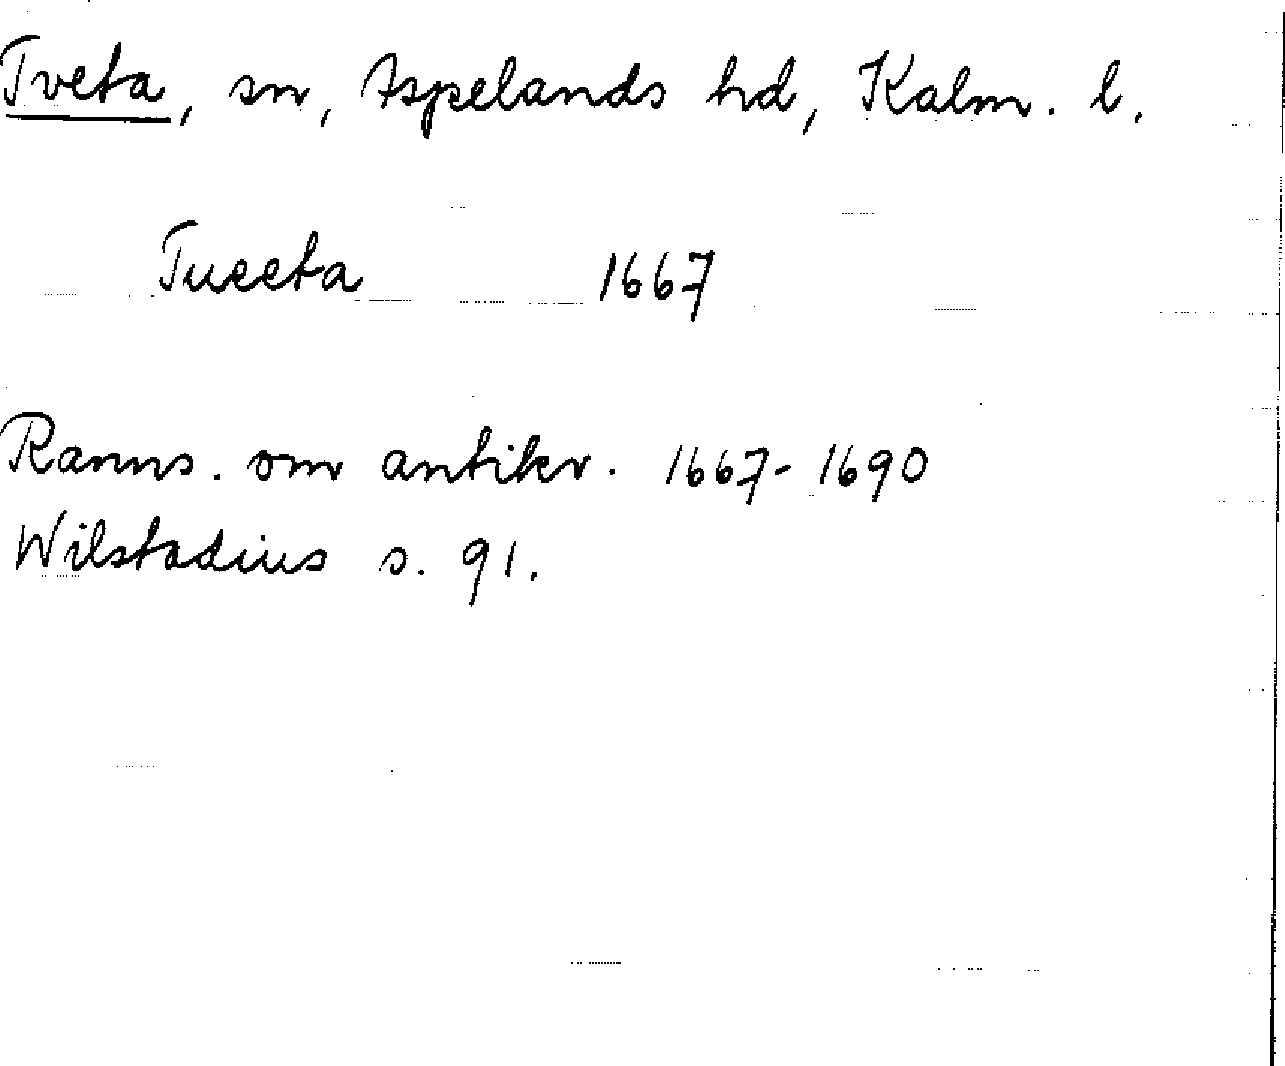 Tveta, sn, Aspelands hd, Kalm. l.
Tueeta 1667
Ranns. om antikv. 1667-1690
Wilstadius s. 91.